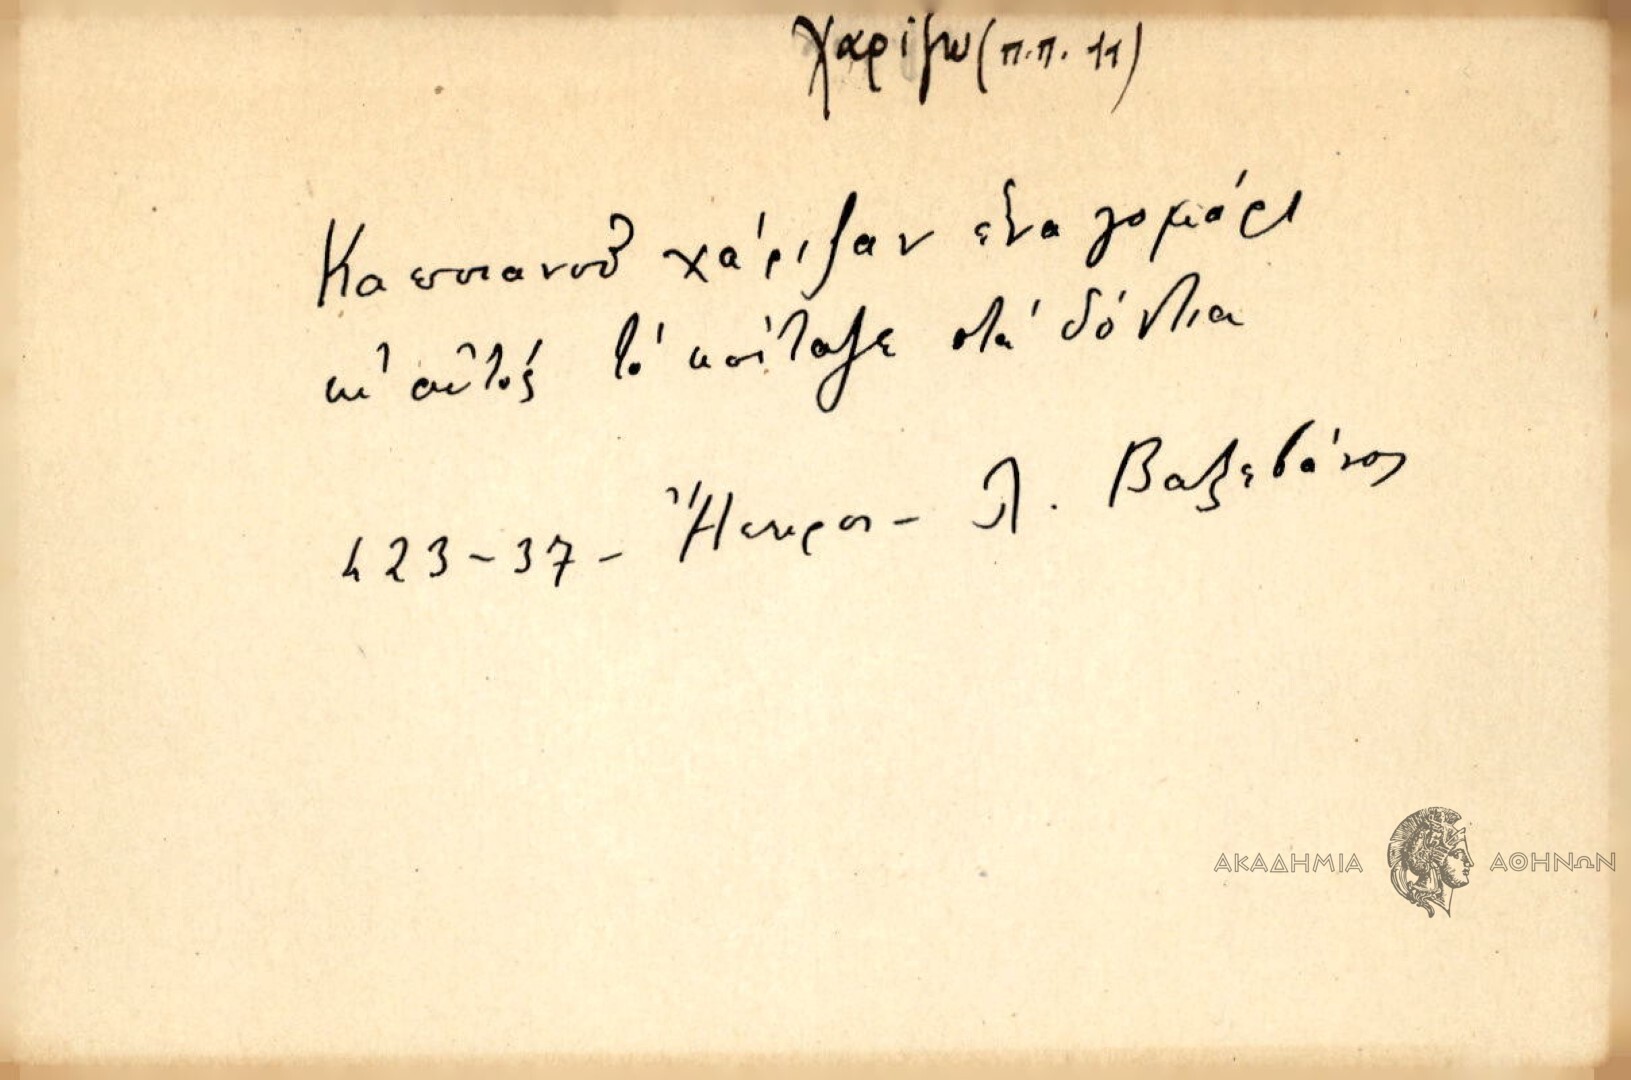 Χαρίζω (π.π. 11)
Καποιανοῦ χάριζαν ἕνα γομάρι
κι' αὐτός τό κοίταζε στά δόντια
423-37- Ἤπειρος - Λ. Βαζεβάνος
ΑΚΑΔΗΜΙΑ ΑΘΗΝΩΝ